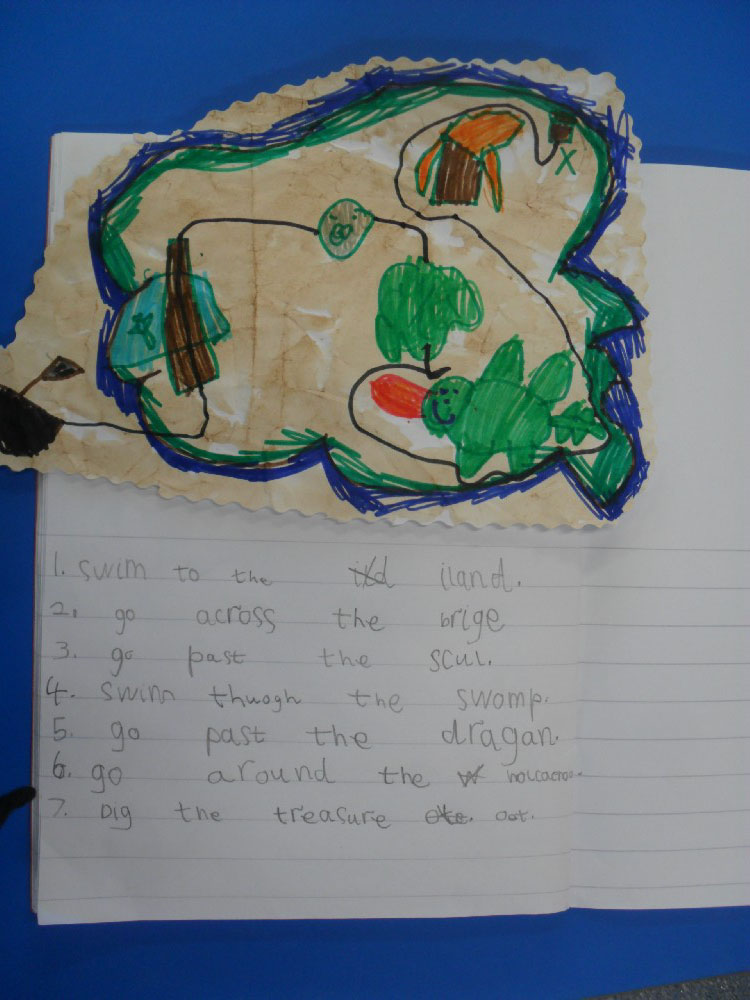 X
1. swim to the iland.
2. go across the brige
3. go past the scul.
4. swim thuogh the swomp.
5. go past the dragan.
6. go around the
7. Dig the treasure oot.